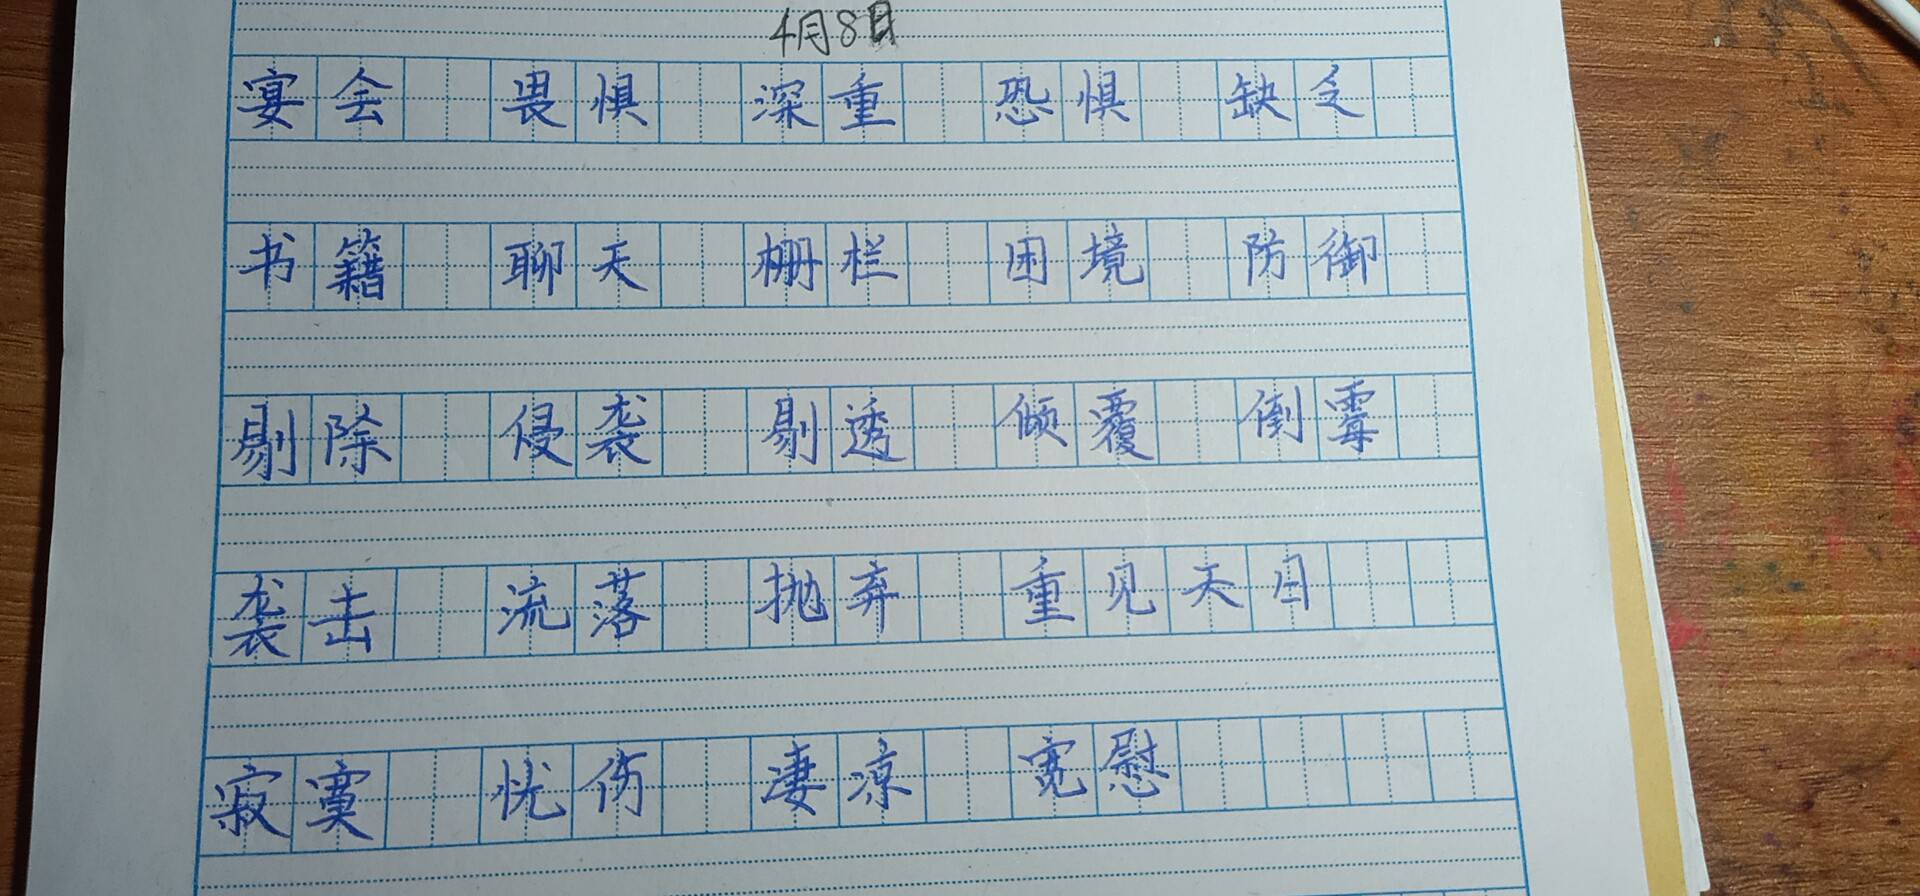 4月8日
宴会 畏惧 深重 恐惧 缺乏
书籍 聊天 栅栏 困境 防御
剔除 侵袭 剔透 倾覆 倒霉
袭击 流落 抛弃 重见天日
寂寞 忧伤 凄凉 宽慰